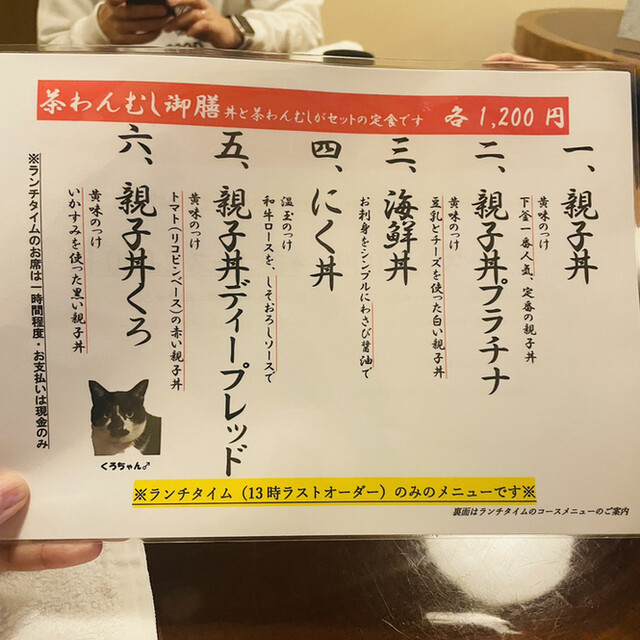 茶わんむし御膳 丼と茶わんむしがセットの定食です 各1,200円
一、親子丼
黄味のつけ
下釜一番人気、定番の親子丼
二、親子丼プラチナ
黄味のつけ
豆乳とチーズを使った白い親子丼
三、海鮮丼
お刺身をシンプルにわさび醤油で
四、にく丼
温玉のつけ
和牛ロースを、しそおろしソースで
五、親子丼ディープレッド
黄味のつけ
トマト(リコピンベース)の赤い親子丼
六、親子丼くろ
黄味のつけ
いかすみを使った黒い親子丼
くろちゃん♂
※ランチタイムのお席は一時間程度・お支払いは現金のみ
※ランチタイム(13時ラストオーダー)のみのメニューです※
裏面はランチタイムのコースメニューのご案内